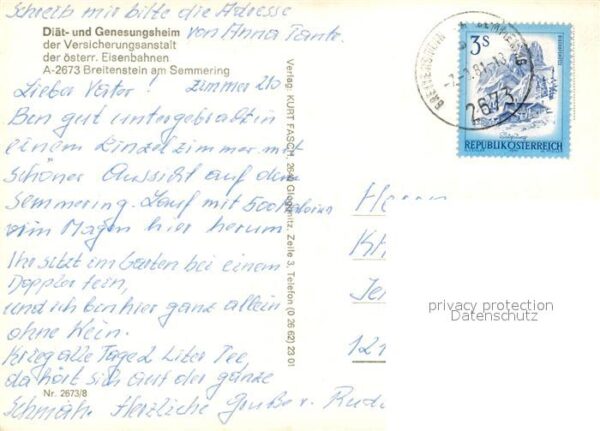 Schreib mir bitte die Adresse
von Anna Tante.
Diät- und Genesungsheim
der Versicherungsanstalt
der österr. Eisenbahnen
A-2673 Breitenstein am Semmering
Lieber Vater! Zimmer 210
Ben gut untergebracht in
einem Einzelzimmer mit
schöner Aussicht auf den
Semmering. Lauf mit 500 Kalorien
im Magen hier herum
Ihr sitzt im Garten bei einem
Doppler fein,
und ich bin hier ganz allein
ohne Wein.
Krieg alle Tage 2 Liter Tee,
da hört sich auf der ganze
Schmäh. Herzliche Grüße v. Rudi
Nr. 2673/8
Verlag: KURT FASCH, 2640 Gloggnitz, Zeile 3, Telefon (0 26 62) 23 01
3S
REPUBLIK ÖSTERREICH
BREITENSTEIN AM SEMMERING
2673
Herrn
121
privacy protection
Datenschutz